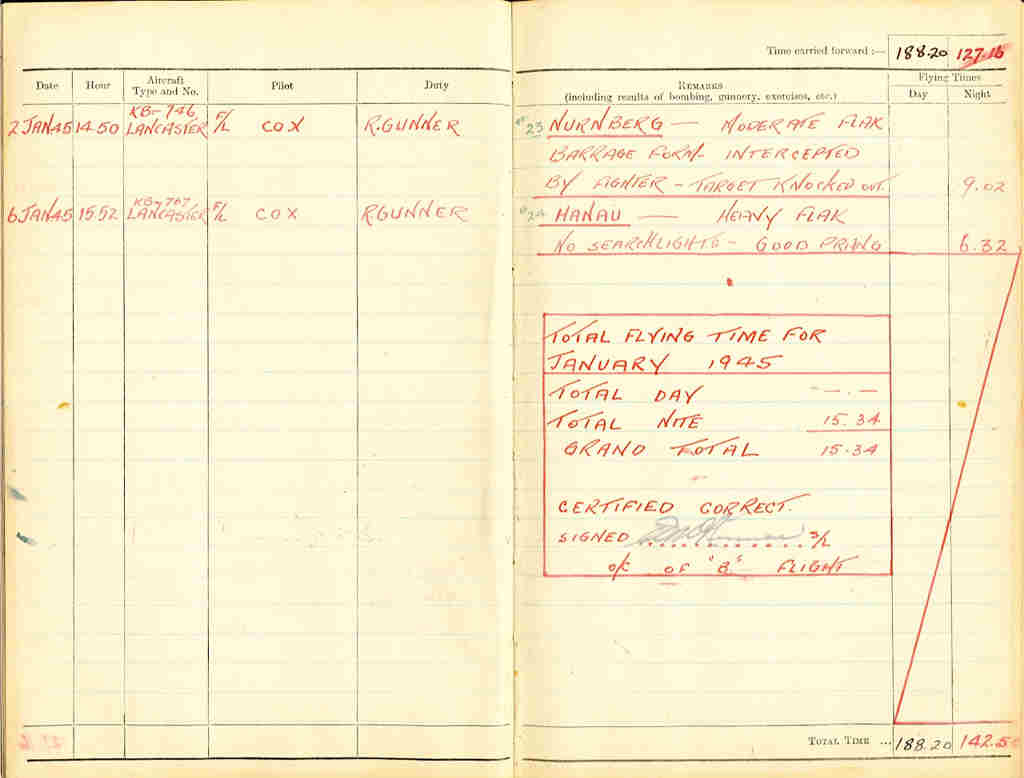 Time carried forward :— 188.20 127.16
Date Hour Aircraft Type and No. Pilot Duty
REMARKS (including results of bombing, gunnery, exercises, etc.)
Flying Times
Day Night
2 JAN 45 14.50 KB-746 LANCASTER F/L COX R.GUNNER
23 NURNBERG — MODERATE FLAK
BARRAGE FORM- INTERCEPTED
BY FIGHTER - TARGET KNOCKED OUT. 9.02
6 JAN 45 15 52 KB-767 LANCASTER F/L COX R GUNNER
24 HANAU — HEAVY FLAK
NO SEARCHLIGHTS - GOOD PRANG 6.32
TOTAL FLYING TIME FOR
JANUARY 1945
TOTAL DAY — . —
TOTAL NITE 15.34
GRAND TOTAL 15.34
CERTIFIED CORRECT.
SIGNED S/L
O/C OF "B" FLIGHT
TOTAL TIME ... 188.20 142.50